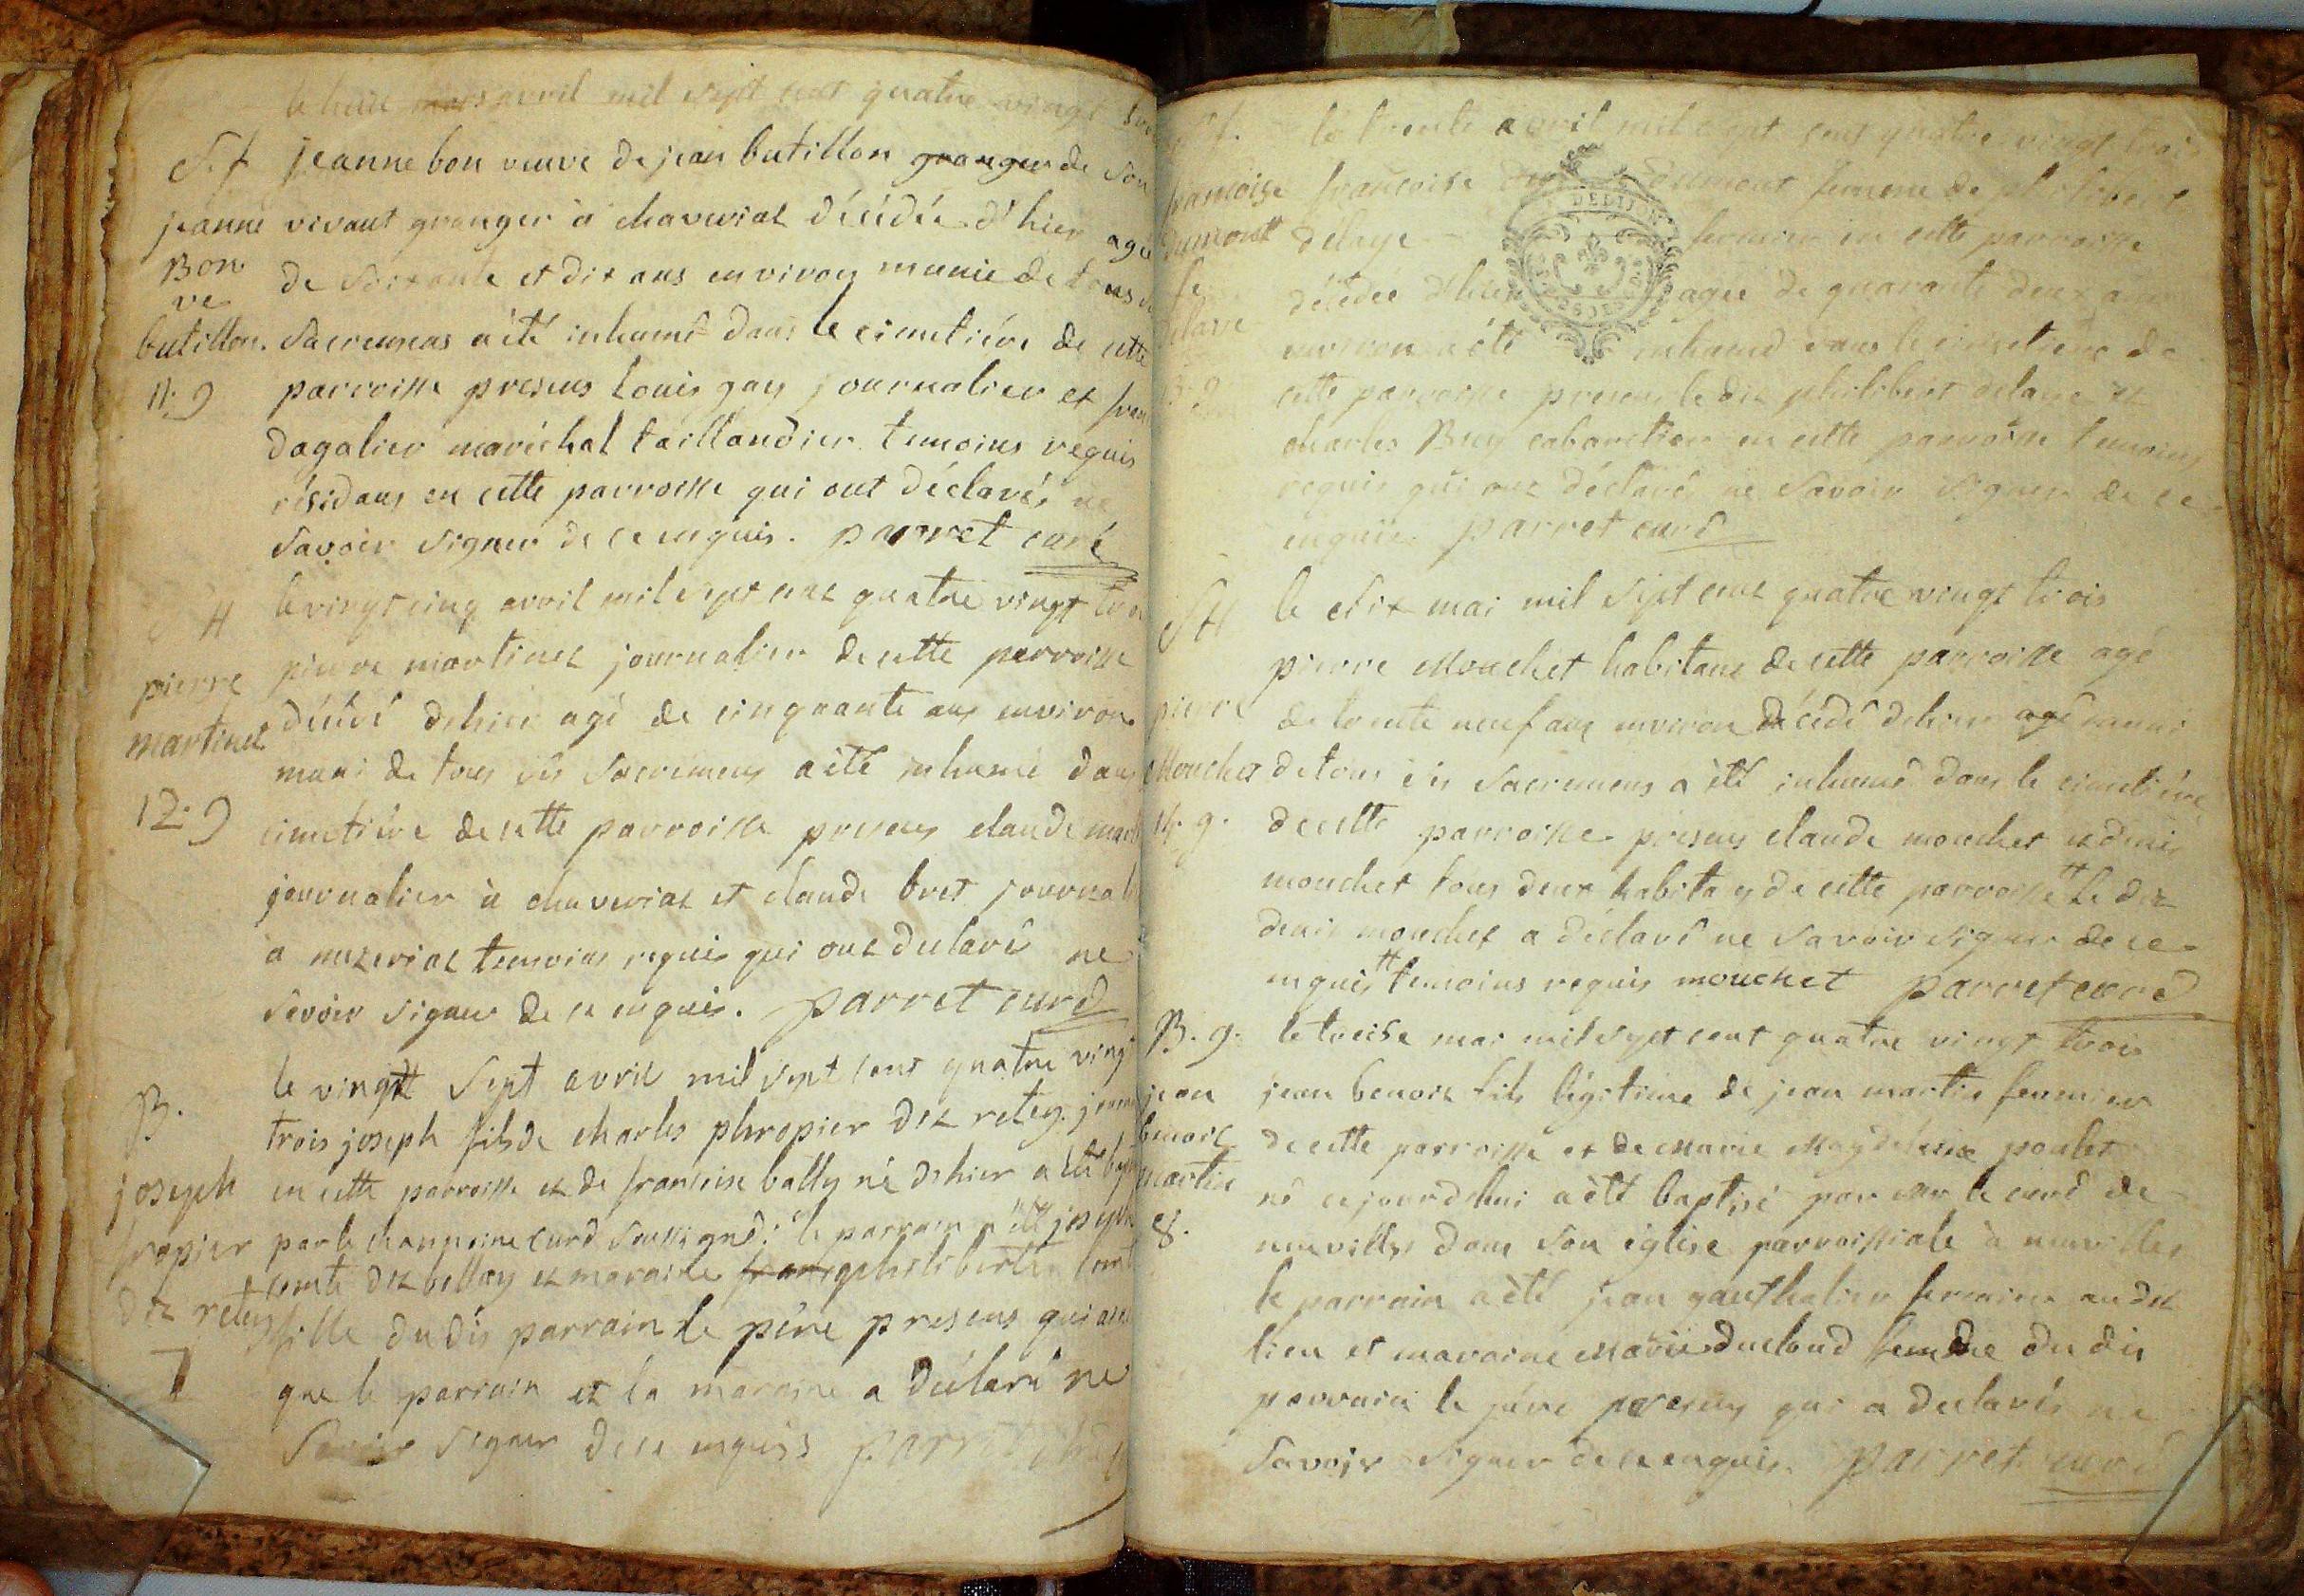 le huit mars avril mil sept cent quatre vingt
S. f jeanne bon veuve de jean butillon granger de son
jeanne vivant granger à chaveriat décédée d'hier agée
Bon de soixante et dix ans environ munie de tous
ve
butillon. sacremens a été inhumé dans le cimetiére de cette
11. 9 parroisse presens Louis gay journalier et
dagalier maréchal taillandier temoins requis
résidans en cette parroisse qui ont déclarés ne
savoir signer de ce enquis. parret curé
le vingt cinq avril mil sept cent quatre vingt
pierre martinet journalier de cette parroisse
pierre
martinet décédé dehier agé de cinquante ans environ
muni de tous ses sacremens a été inhumé dans
12. 9 cimetiére de cette parroisse presens claude
journalier à chaveriat et claude bret
a mezeriat temoins requis qui ont declaré ne
sçvoir signer de ce enquis. parret curé
le vingt sept avril mil sept cent quatre vingt
B. trois joseph fils de charles phropier dit retey
joseph en cette parroisse et de francoise bally né dehier a été
fropier par le chanpoine curé soussigné: le parrain a été joseph
comte dit bellay et maraine philiberte
dit retey fille du dis parrain le pére presens qui
7 que le parrain et la maraine a déclaré ne
savoir signer de ce enquiss parret
le trente avril mil sept cent quatre vingt trois
francoise francoise dumont femme de philibert
dumont delaye fermier en cette parroisse
fe
delaye décédée d'hier agée de quarante deux ans
environ a été inhumé dans le cimetiére de
13. 9 cette parroisse presens le dit philibert delaye et
charles Buy cabaretier en cette parroisse temoins
requis qui ont déclaré ne savoir signer de ce
enquis. parret curé
le dix mai mil sept cent quatre vingt trois
pierre Mouchet habitant de cette parroisse agé
pierre de trente neuf ans environ décédé dehier agé muni
Mouchet de tous ses sacremens a été inhumé dans le cimetiére
14. 9. de cette parroisse presens claude mouchet et denis
mouchet tous deux habitans de cette parroisse # le dit
denis mouchet a déclaré ne savoir signer de ce
enquis # temoins requis mouchet parret curé
B. g. le treise mai mil sept cent quatre vingt trois
jean jean benoit fils légitime de jean martin fermier
benoit de cette parroisse et de Marie Magdeleine poulet
martin né ce jourd'hui a été baptisé par mr le curé de
8. neuvilles dans son église parroissiale à neuvilles
le parrain a été jean gauthalier fermier au dit
lieu et maraine Marie ducloud femme du dis
parrain le pére presens qui a declarés ne
savoir signer de ce enquis. parret curé